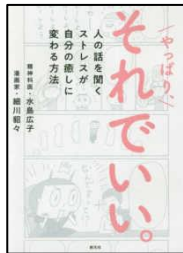 やっぱり、
それでいい。
人の話を聞く
ストレスが
自分の癒しに
変わる方法
精神科医・水島広子
漫画家・細川貂々
創元社